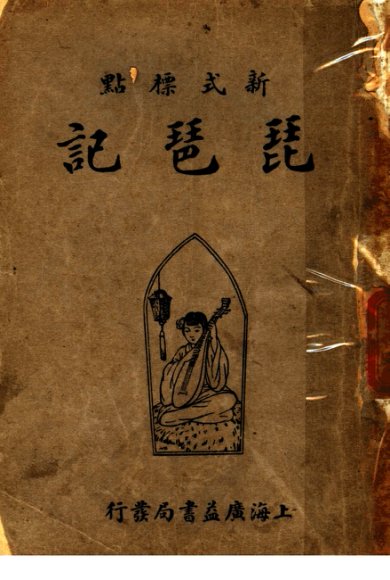 新式標點
琵琶記
上海廣益書局發行